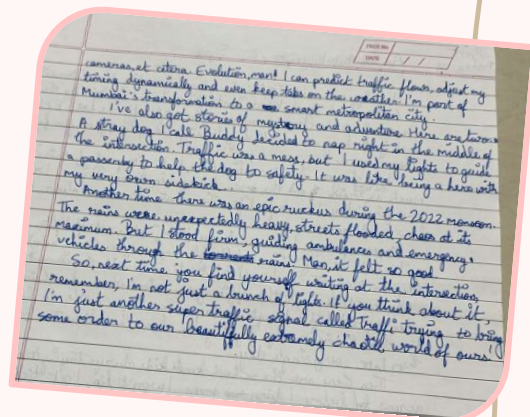 PAGE NO.
DATE
cameras, et citera. Evolution, man! I can predict traffic flows, adjust my
timing dynamically and even keep tabs on the weather. I'm part of
Mumbai's transformation to a smart metropolitan city.
I've also got stories of mystery and adventure. Here are two:
A stray dog I call Buddy decided to nap right in the middle of
the intersection. Traffic was a mess, but I used my lights to guide
a passenby to help the dog to safety. It was like being a hero with
my very own sidekick.
Another time there was an epic ruckus during the 2022 monsoon.
The rains were unexpectedly heavy, streets flooded, chaos at its
maximum. But I stood firm, guiding ambulances and emergency
vehicles through the rain. Man, it felt so good.
So, next time you find yourself writing at the intersection,
remember, I'm not just a bunch of lights. If you think about it,
I'm just another super traffic signal called Traffi trying to bring
some order to our beautifully extremely chaotic world of ours!